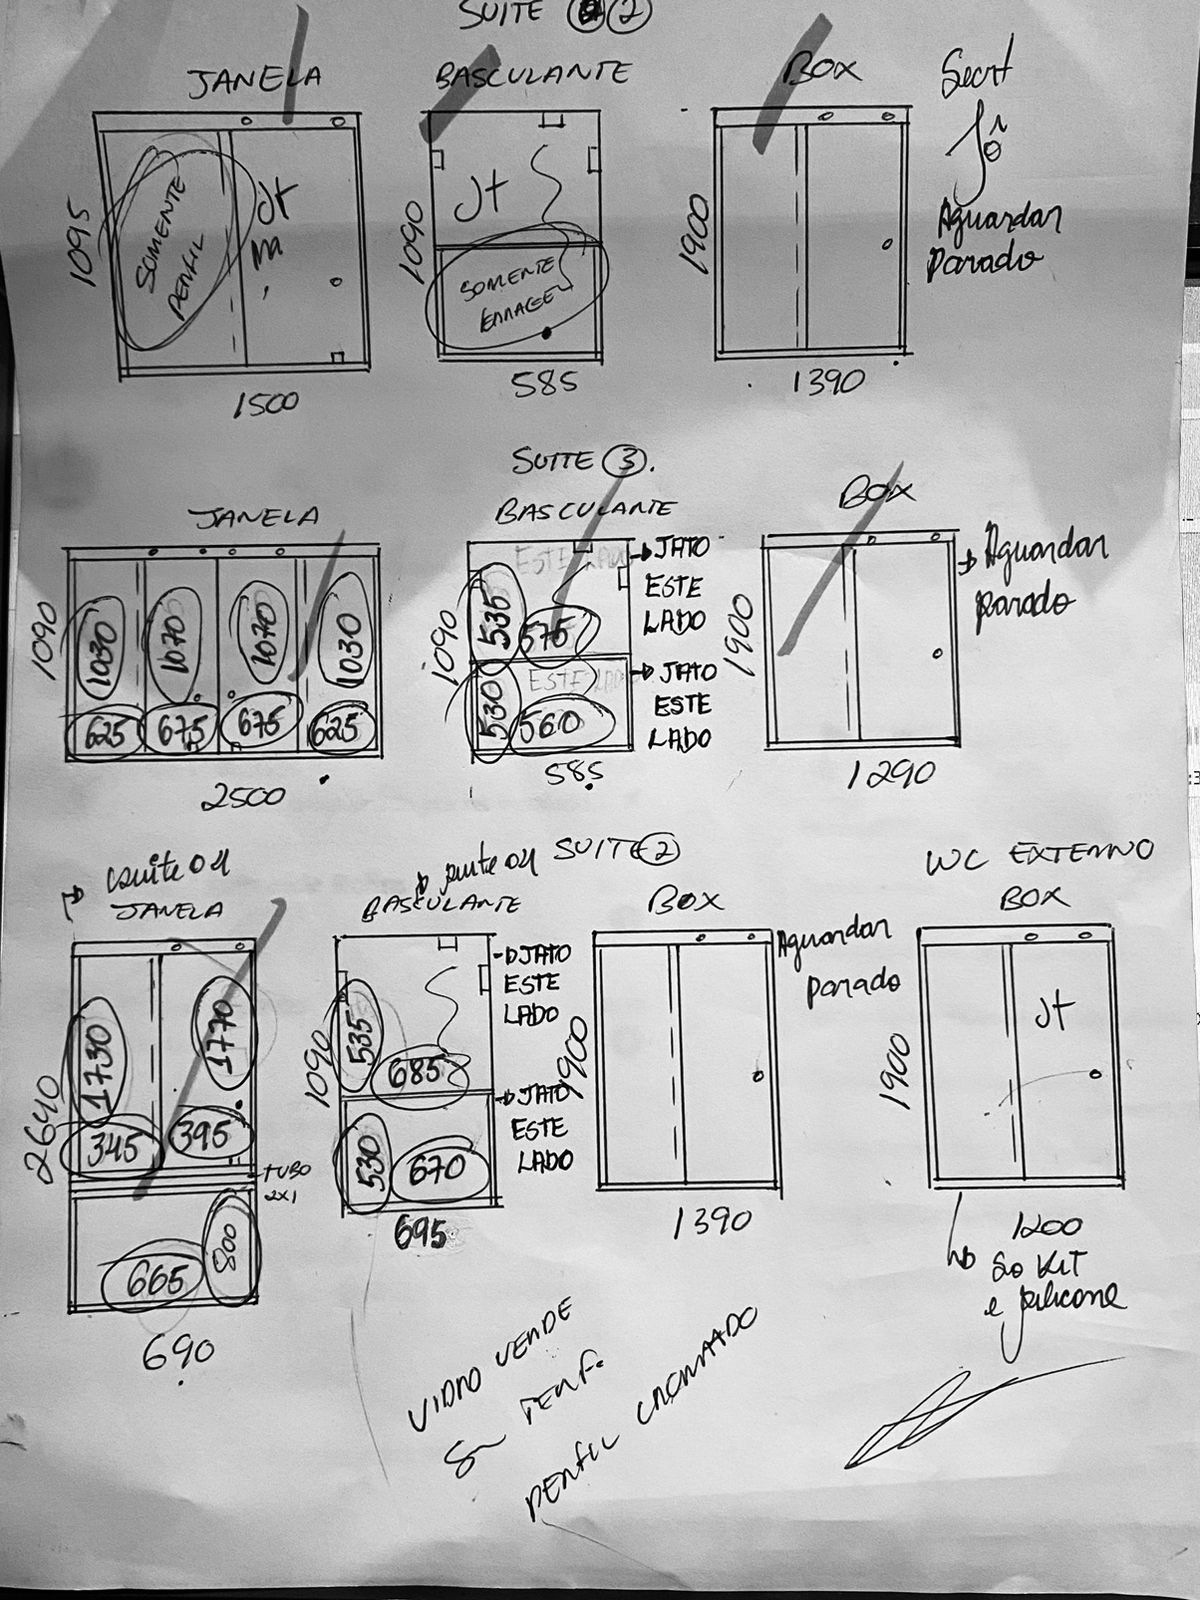 SUITE 2
JANELA
BASCULANTE
BOX
1095
SOMENTE
PERFIL
Jt
1500
1090
Jt
SOMENTE
585
1900
1390
Aguardar
parado
SUITE 3.
JANELA
1090
1030
1070
1070
1030
625
675
675
625
2500
BASCULANTE
1090
ESTE LADO
535
575
ESTE LADO
530
560
585
JATO
ESTE
LADO
JATO
ESTE
LADO
BOX
1900
1290
Aguardar
parado
suite 04
JANELA
2640
1730
1770
345
395
TUBO
2X1
665
800
690
suite 04
BASCULANTE
1090
535
685
530
670
695
JATO
ESTE
LADO
JATO
ESTE
LADO
SUITE 2
BOX
1900
1390
Aguardar
parado
WC EXTERNO
BOX
1900
Jt
1200
So KIT
e silicone
VIDRO VERDE
PERFIL CROMADO